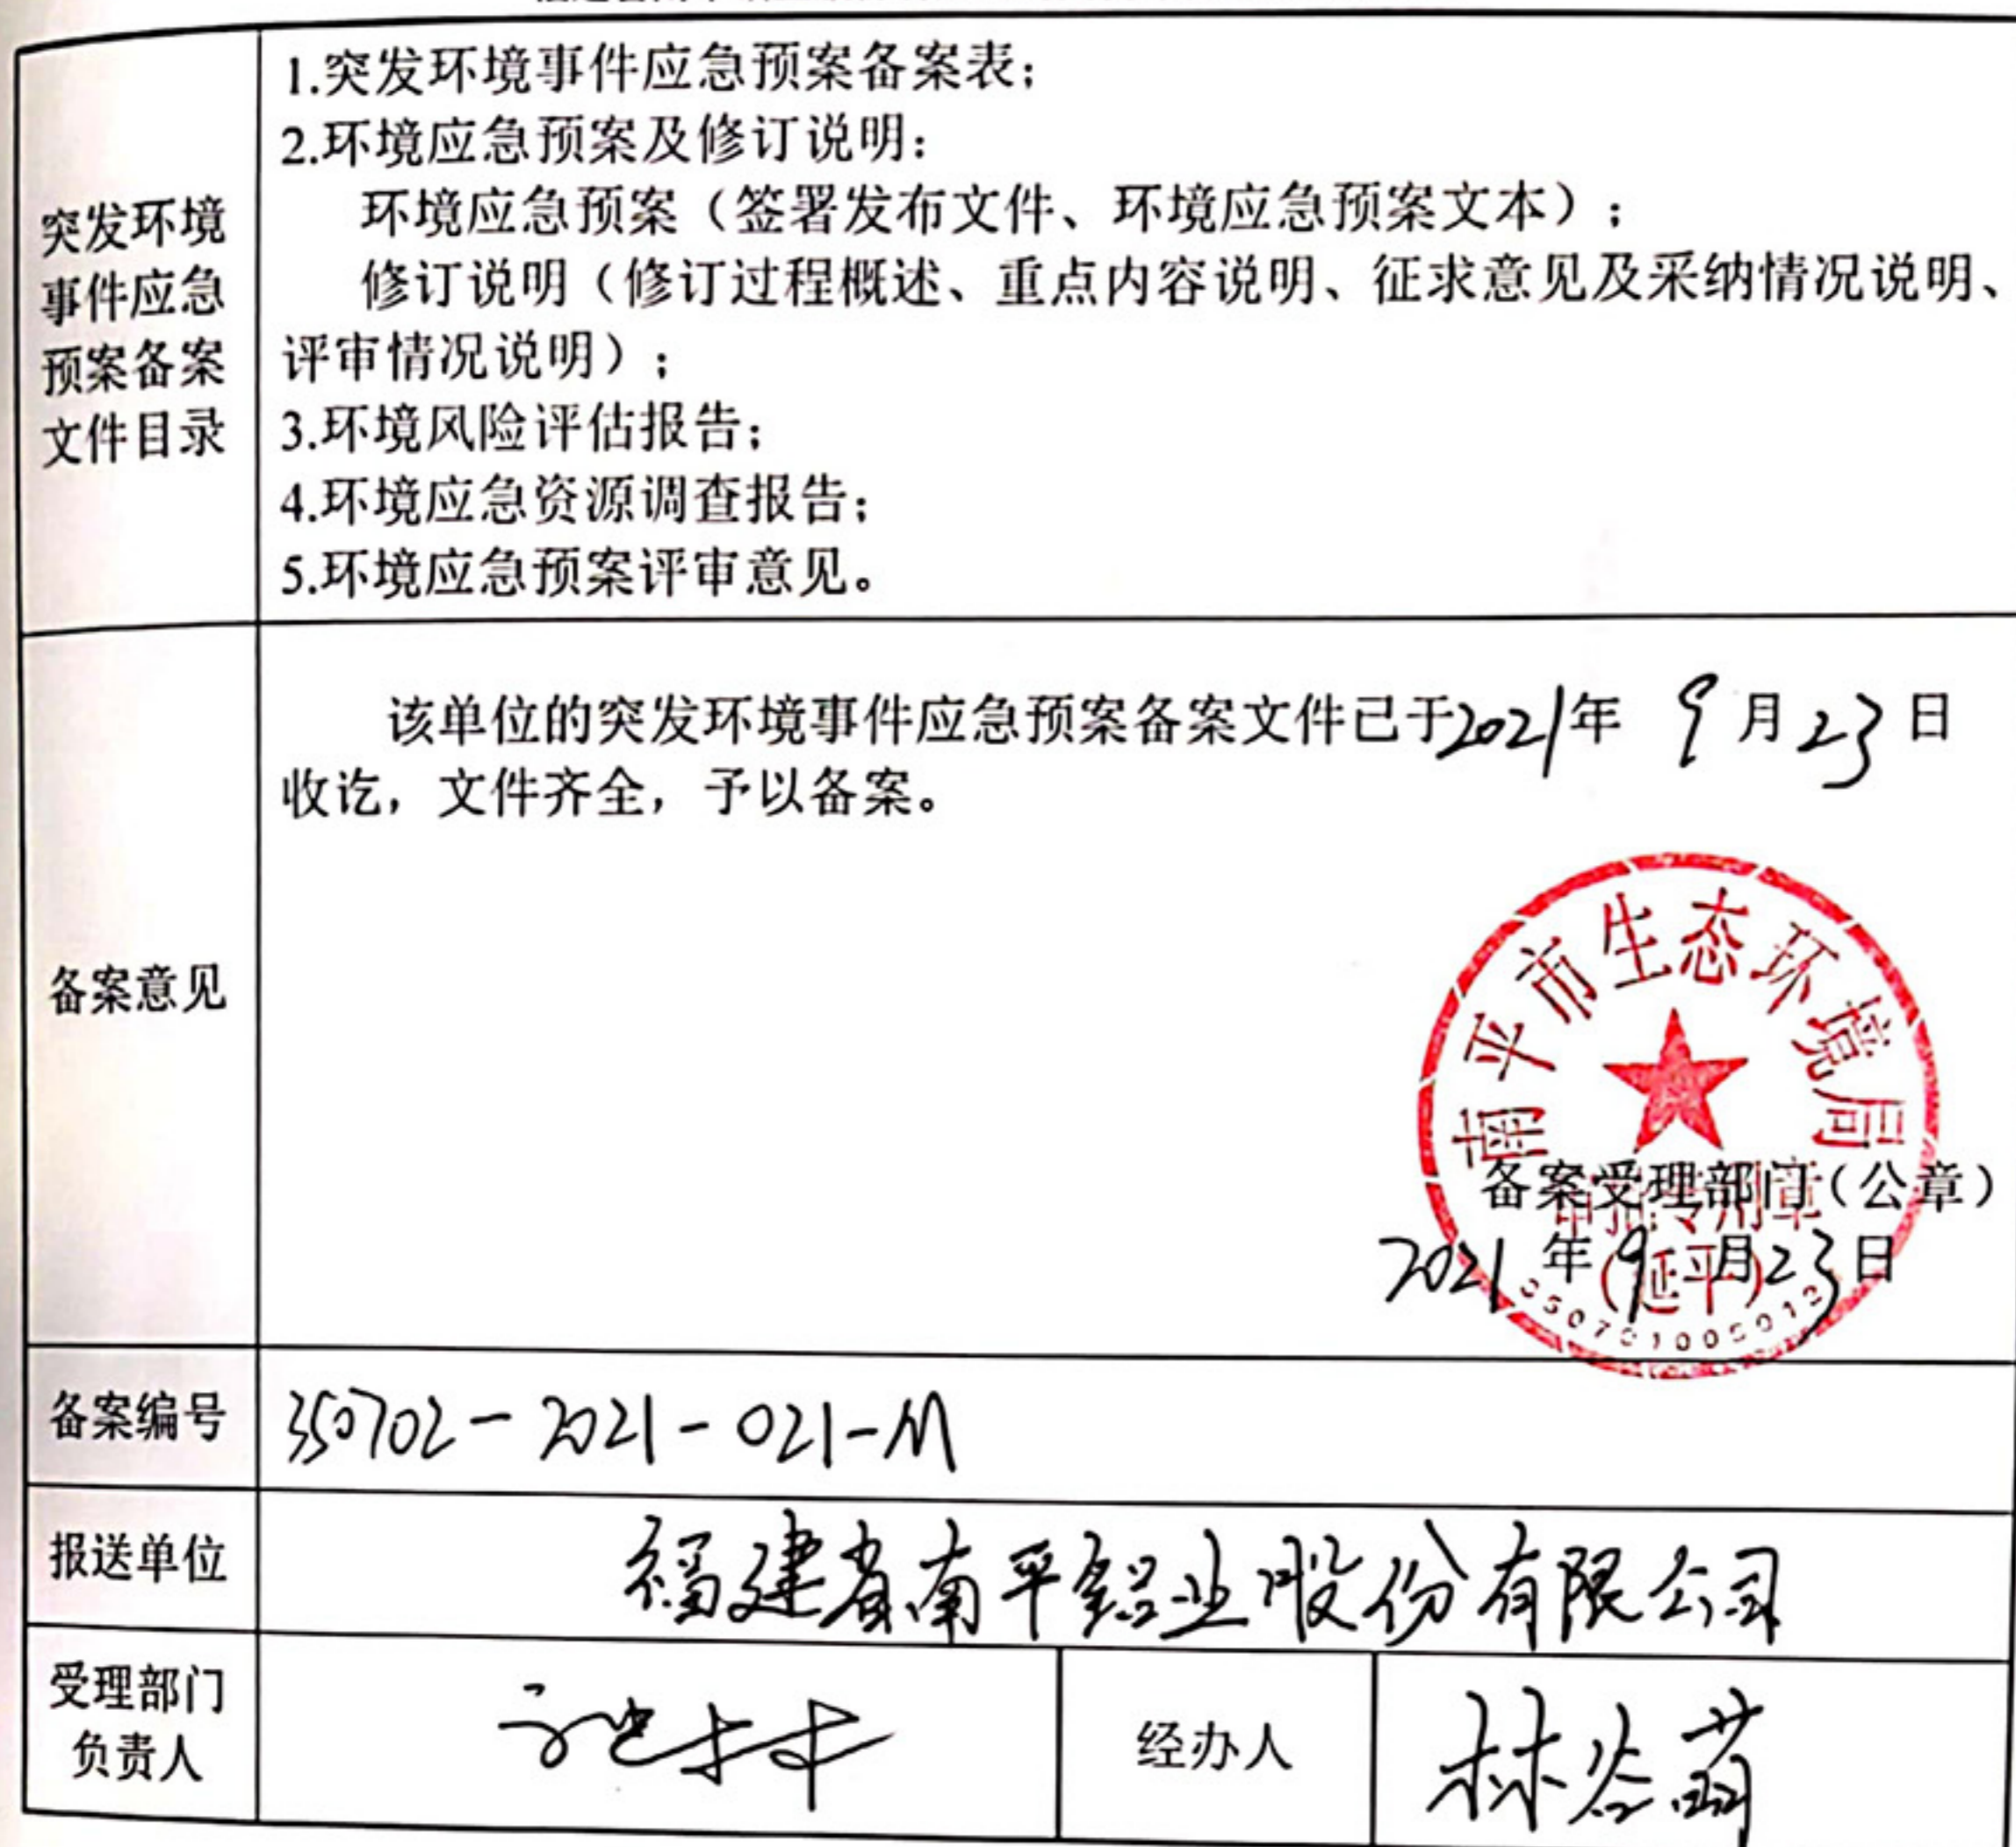 突发环境
事件应急
预案备案
文件目录
1.突发环境事件应急预案备案表；
2.环境应急预案及修订说明：
环境应急预案（签署发布文件、环境应急预案文本）；
修订说明（修订过程概述、重点内容说明、征求意见及采纳情况说明、
评审情况说明）；
3.环境风险评估报告；
4.环境应急资源调查报告；
5.环境应急预案评审意见。
备案意见
该单位的突发环境事件应急预案备案文件已于2021年 9月23日
收讫，文件齐全，予以备案。
南平市生态环境局
备案受理部门（公章）
审批专用章
2021年9月23日
（延平）
备案编号
350702-2021-021-M
报送单位
福建省南平铝业股份有限公司
受理部门
负责人
经办人
林